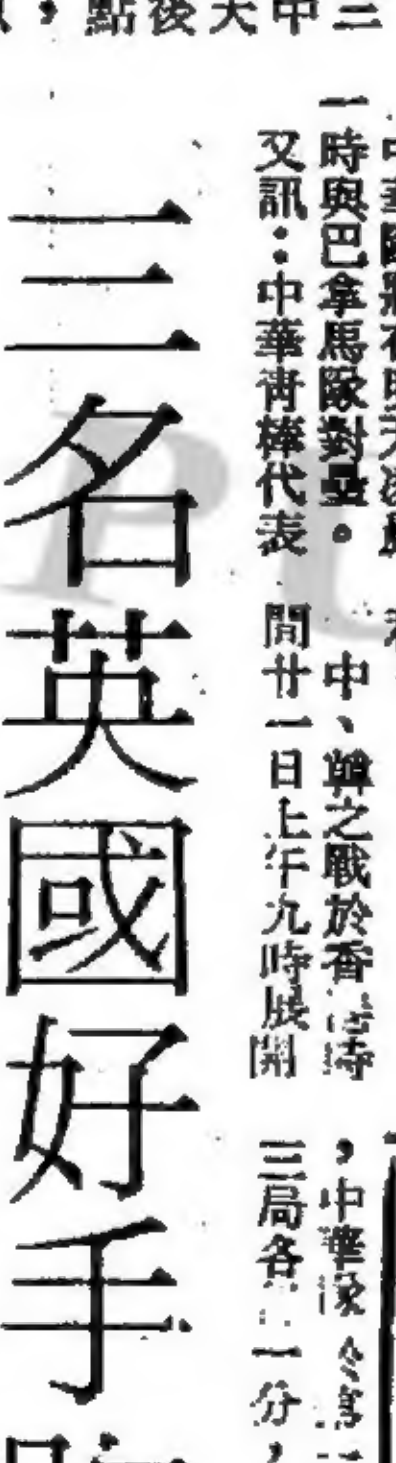 三中天後點，
中華隊將在明天凌晨
一時與巴拿馬隊對壘。
又訊：中華青棒代表
中、韓之戰於香港時
間廿一日上午九時展開
，中華隊
三局各 一分，
三名英國好手